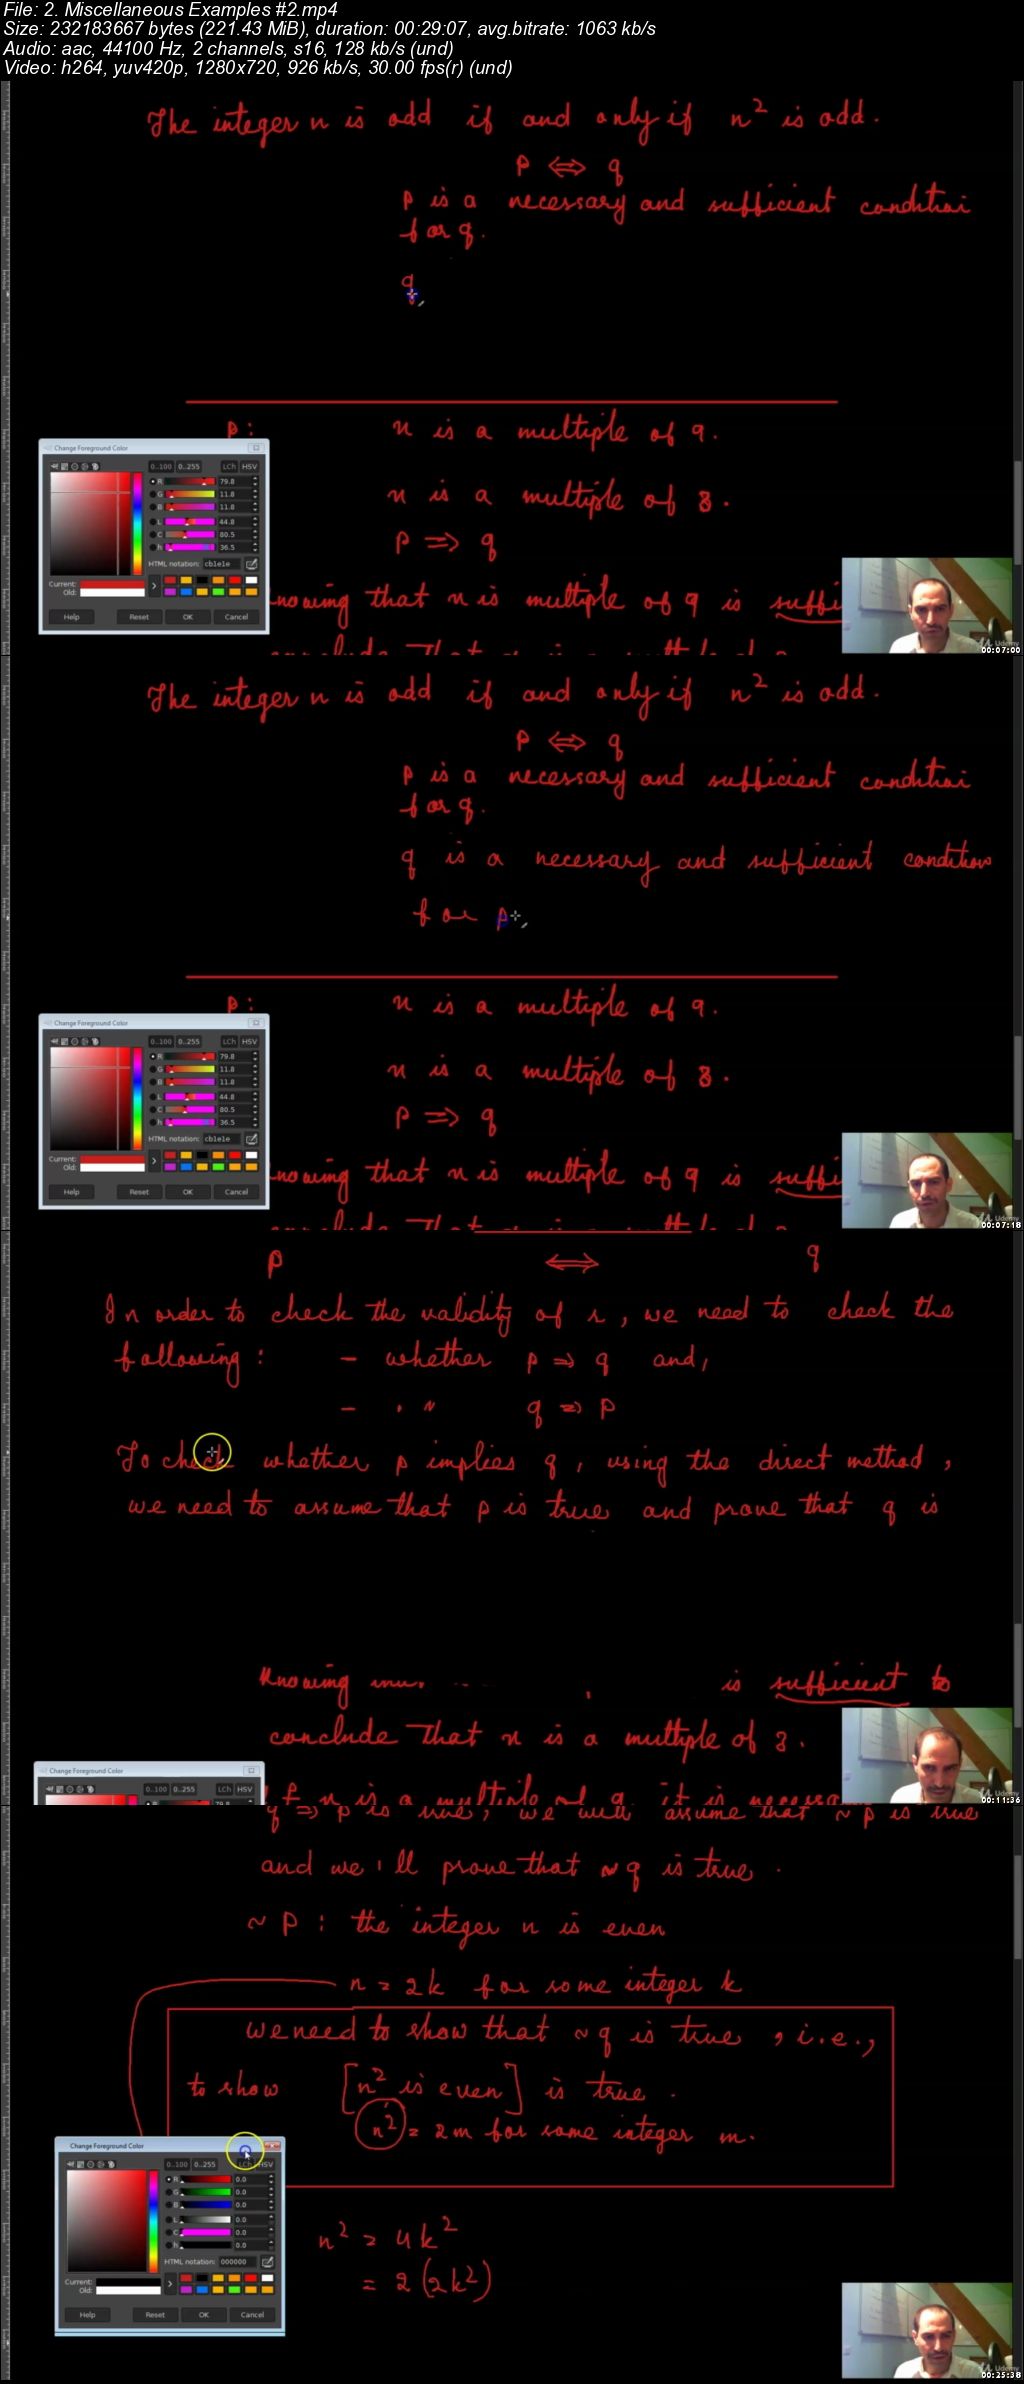 File: 2. Miscellaneous Examples #2.mp4
Size: 232183667 bytes (221.43 MiB), duration: 00:29:07, avg.bitrate: 1063 kb/s
Audio: aac, 44100 Hz, 2 channels, s16, 128 kb/s (und)
Video: h264, yuv420p, 1280x720, 926 kb/s, 30.00 fps(r) (und)
The integer n is odd if and only if n² is odd.
p ⇔ q
p is a necessary and sufficient condition
for q.
q
p: n is a multiple of 9.
Change Foreground Color
0..100 0..255 LCh HSV
R 79.8
G 11.8
B 11.8
L 44.8
C 80.5
h 36.5
HTML notation: cb1e1e
Current:
Old:
Help Reset OK Cancel
n is a multiple of 3.
p ⇒ q
nowing that n is multiple of 9 is suffi
conclude that n is a multiple of 3
Udemy
00:07:00
The integer n is odd if and only if n² is odd.
p ⇔ q
p is a necessary and sufficient condition
for q.
q is a necessary and sufficient condition
for p
p: n is a multiple of 9.
Change Foreground Color
0..100 0..255 LCh HSV
R 79.8
G 11.8
B 11.8
L 44.8
C 80.5
h 36.5
HTML notation: cb1e1e
Current:
Old:
Help Reset OK Cancel
n is a multiple of 3.
p ⇒ q
nowing that n is multiple of 9 is suffi
conclude that n is a multiple of 3
Udemy
00:07:18
p ⇔ q
In order to check the validity of r, we need to check the
following: - whether p ⇒ q and,
- " q ⇒ p
To check whether p implies q, using the direct method,
we need to assume that p is true and prove that q is
Knowing is sufficient to
conclude that n is a multiple of 3.
Change Foreground Color
0..100 0..255 LCh HSV
R 79.8
If n is a multiple of 9 it is necessary
Udemy
00:11:36
q ⇒ p is true, we will assume that ~p is true
and we'll prove that ~q is true.
~p: the integer n is even
n = 2k for some integer k
we need to show that ~q is true, i.e.,
to show [n² is even] is true.
n² = 2m for some integer m.
Change Foreground Color
0..100 0..255 LCh HSV
R 0.0
G 0.0
B 0.0
L 0.0
C 0.0
h 0.0
HTML notation: 000000
Current:
Old:
Help Reset OK Cancel
n² = 4k²
= 2(2k²)
Udemy
00:25:38